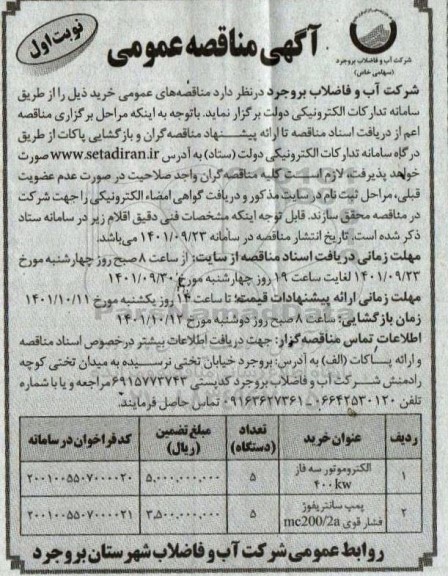 نوبت اول
آگهی مناقصه عمومی
شرکت آب و فاضلاب بروجرد
(سهامی خاص)
شرکت آب و فاضلاب بروجرد درنظر دارد مناقصه‌های عمومی خرید ذیل را از طریق
سامانه تدارکات الکترونیکی دولت برگزار نماید. باتوجه به اینکه مراحل برگزاری مناقصه
اعم از دریافت اسناد مناقصه تا ارائه پیشنهاد مناقصه‌گران و بازگشایی پاکات از طریق
درگاه سامانه تدارکات الکترونیکی دولت (ستاد) به آدرس www.setadiran.ir صورت
خواهد پذیرفت، لازم است کلیه مناقصه‌گران واجد صلاحیت در صورت عدم عضویت
قبلی، مراحل ثبت نام در سایت مذکور و دریافت گواهی امضاء الکترونیکی را جهت شرکت
در مناقصه محقق سازند. قابل توجه اینکه مشخصات فنی دقیق اقلام زیر در سامانه ستاد
ذکر شده است. تاریخ انتشار مناقصه در سامانه ۱۴۰۱/۰۹/۲۳ می‌باشد.
مهلت زمانی دریافت اسناد مناقصه از سایت: از ساعت ۸ صبح روز چهارشنبه مورخ
۱۴۰۱/۰۹/۲۳ لغایت ساعت ۱۹ روز چهارشنبه مورخ ۱۴۰۱/۰۹/۳۰
مهلت زمانی ارائه پیشنهادات قیمت: تا ساعت ۱۴ روز یکشنبه مورخ ۱۴۰۱/۱۰/۱۱
زمان بازگشایی: ساعت ۸ صبح روز دوشنبه مورخ ۱۴۰۱/۱۰/۱۲
اطلاعات تماس مناقصه‌گزار: جهت دریافت اطلاعات بیشتر درخصوص اسناد مناقصه
و ارائه پاکات (الف) به آدرس: بروجرد خیابان تختی نرسیده به میدان تختی کوچه
رادمنش شرکت آب و فاضلاب بروجرد کدپستی ۶۹۱۵۷۷۳۷۴۳ مراجعه و یا با شماره
تلفن ۰۶۶۴۲۵۳۰۱۲۰ - ۰۹۱۶۳۶۲۷۳۶۱ تماس حاصل فرمایند.
ردیف عنوان خرید تعداد (دستگاه) مبلغ تضمین (ریال) کد فراخوان در سامانه
۱ الکتروموتور سه فاز ۴۰۰kw ۵ ۵,۰۰۰,۰۰۰,۰۰۰ ۲۰۰۱۰۰۵۵۰۷۰۰۰۰۲۰
۲ پمپ سانتریفوژ فشار قوی mc200/2a ۵ ۳,۵۰۰,۰۰۰,۰۰۰ ۲۰۰۱۰۰۵۵۰۷۰۰۰۰۲۱
روابط عمومی شرکت آب و فاضلاب شهرستان بروجرد